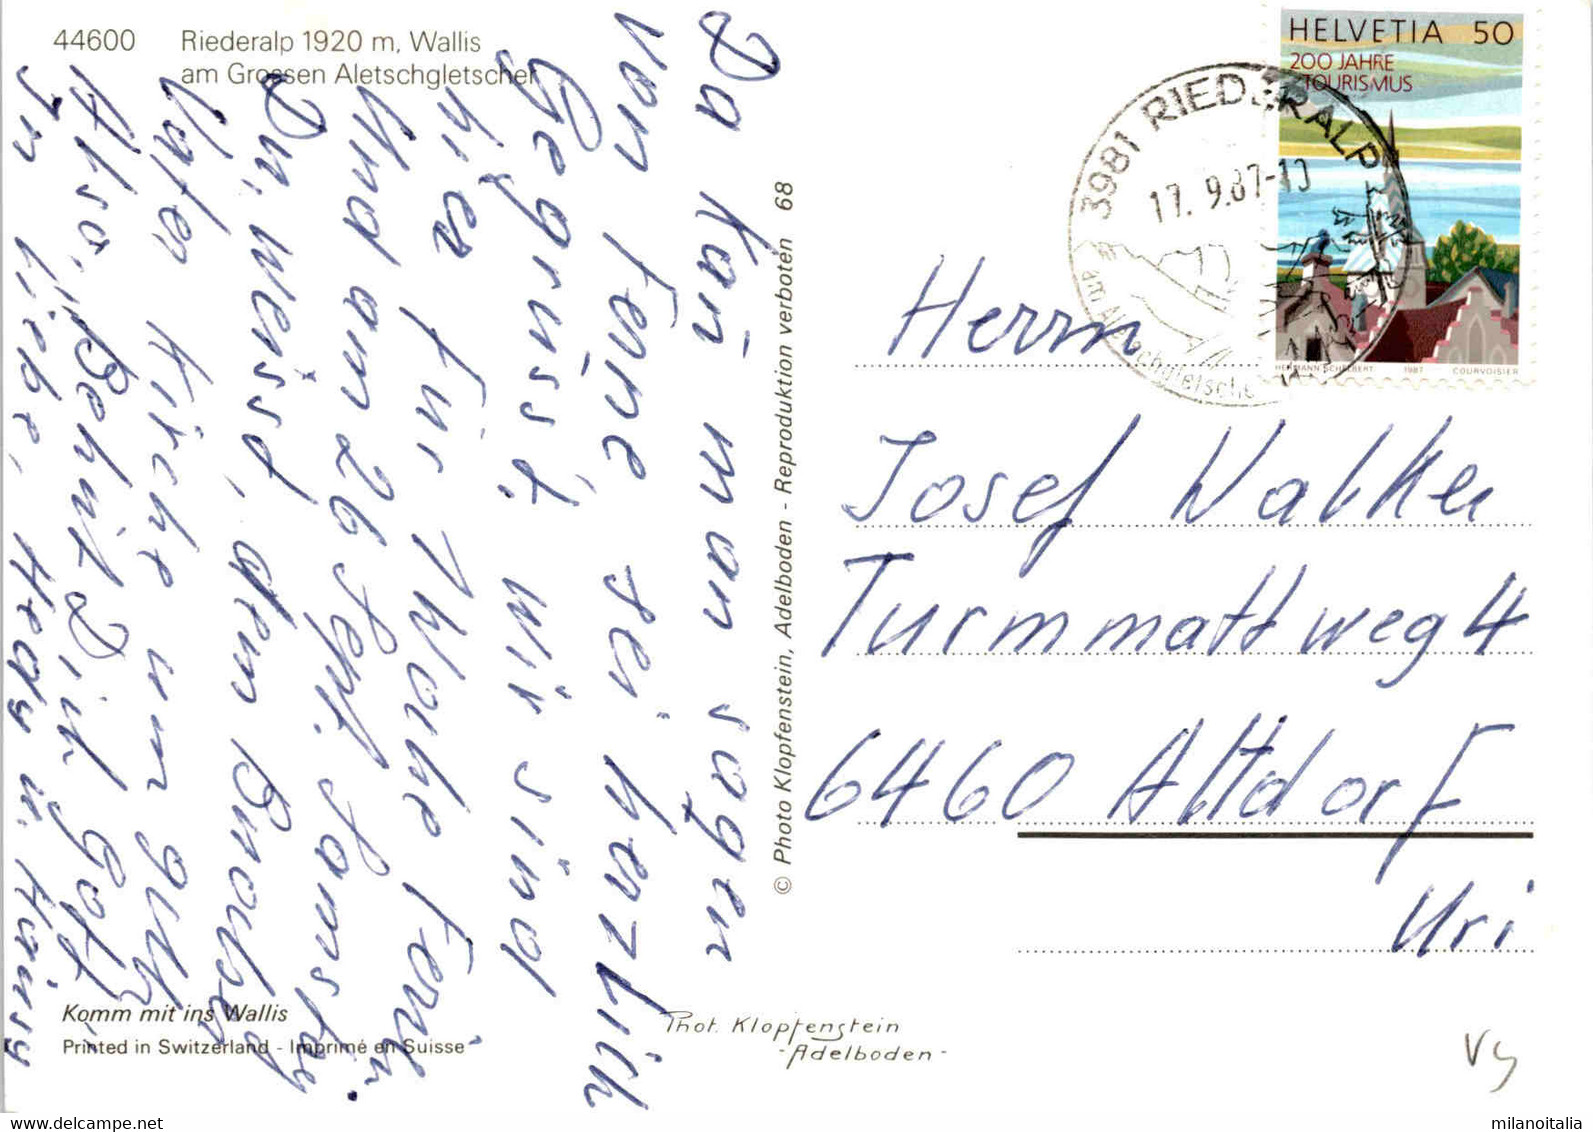 44600 Riederalp 1920 m, Wallis
am Grossen Aletschgletscher
HELVETIA 50
200 JAHRE
TOURISMUS
HERMANN SCHELBERT 1987 COURVOISIER
3981 RIEDERALP
17. 9.87-10
am Aletschgletscher
Da kañ man sagen
von Ferne, sei herzlich
Gegrüsst, wir sind
hier für 1 Woche Ferien
Und am 26 Sept. Samstag
Du, weisst, dem Bruder
Vater Kirche um
Also, "Behüt Dich Gott,
In Liebe, Hedy u. Hansy
© Photo Klopfenstein, Adelboden - Reproduktion verboten 68
Herrn
Josef Walker
Turmmattweg 4
6460 Altdorf
Uri
Komm mit ins Wallis
Printed in Switzerland - Imprimé en Suisse
Phot. Klopfenstein
- Adelboden -
milanoitalia